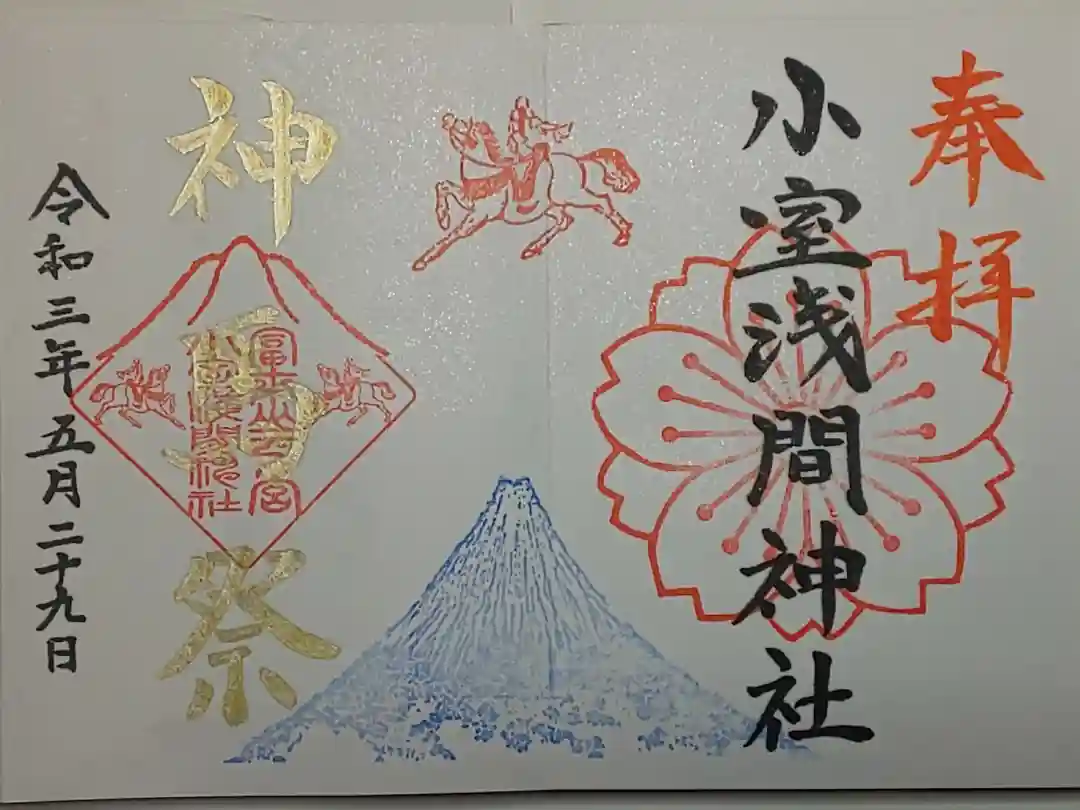 奉拝
小室浅間神社
神馬祭
冨士山下宮
小室浅間神社
令和三年五月二十九日